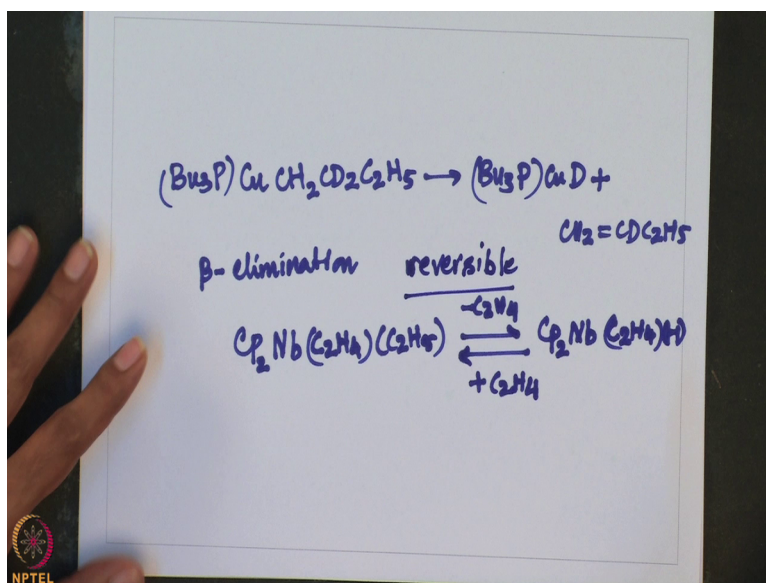 (Bu3P) Cu CH2CD2C2H5 → (Bu3P) CuD +
CH2 = CDC2H5
β-elimination reversible
-C2H4
Cp2Nb(C2H4)(C2H5) ⇌ Cp2Nb(C2H4)(H)
+C2H4
NPTEL